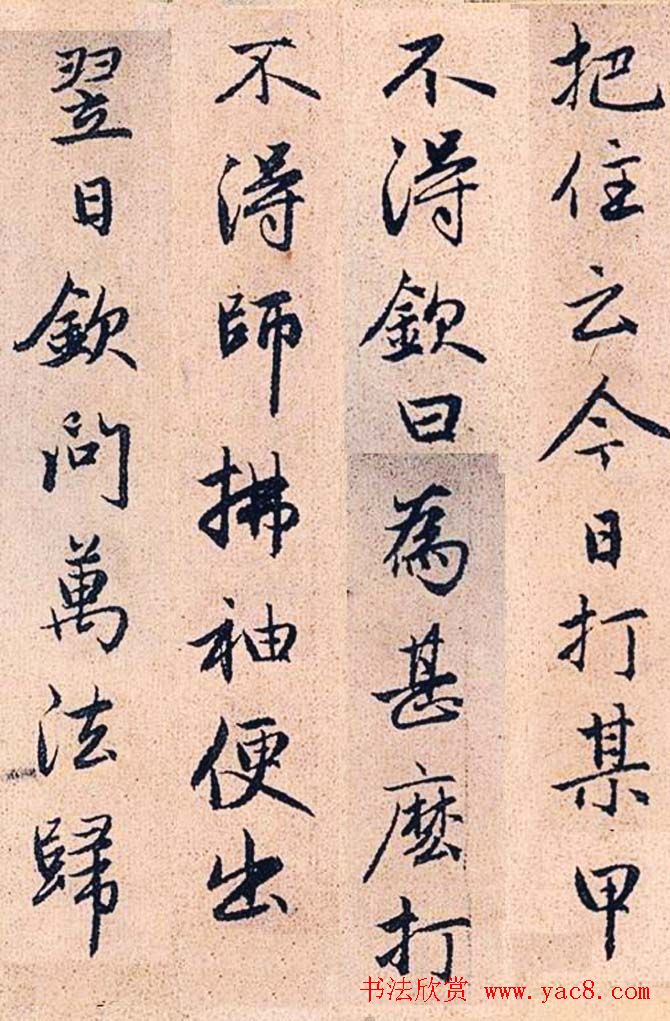 把住云今日打某甲
不得欽曰為甚麼打
不得師拂袖便出
翌日欽问萬法歸
书法欣赏 www.yac8.com